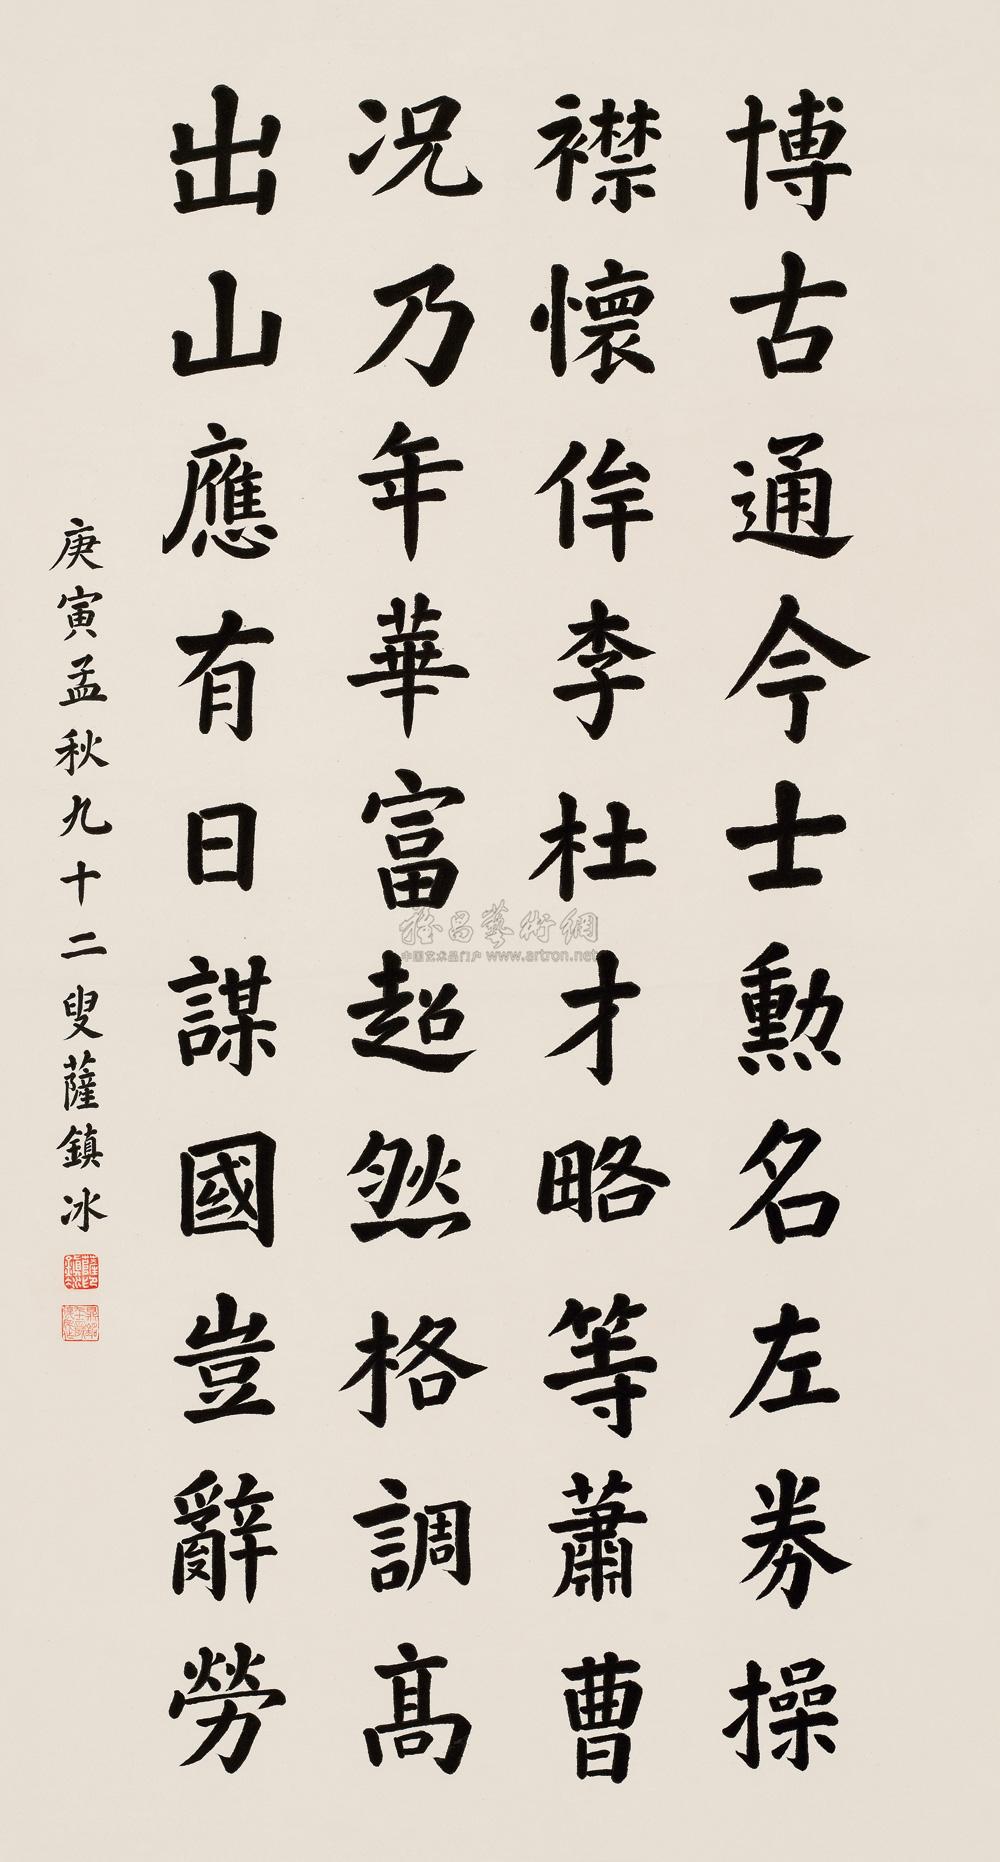 博古通今士勲名左券操
襟懷侔李杜才略等蕭曹
况乃年華富超然格調高
出山應有日謀國豈辭勞
庚寅孟秋九十二叟薩鎮冰
雅昌藝術網
中国艺术品门户 www.artron.net